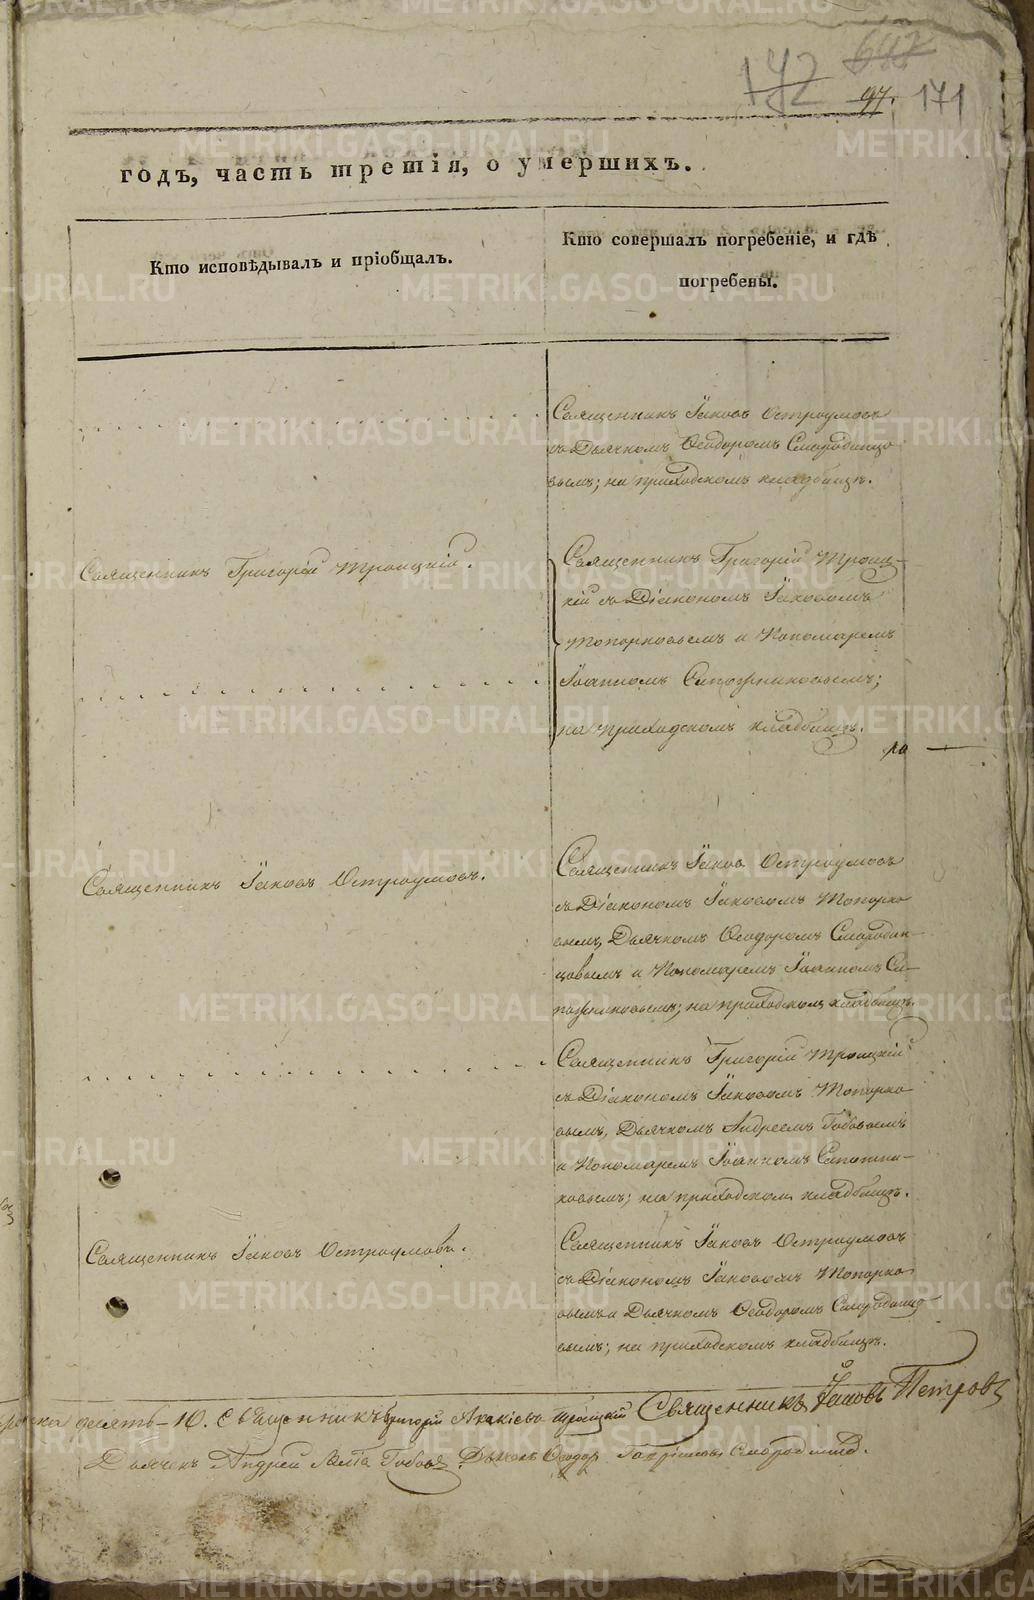 172 642
97. 171
годъ, часть третія, о умершихъ.
Кто исповѣдывалъ и пріобщалъ.
Кто совершалъ погребеніе, и гдѣ
погребены.
Священникъ Іаковъ Остроумовъ
съ Дьячкомъ Ѳеодоромъ Смородинцо
вымъ; на приходскомъ кладбищѣ.
Священникъ Григорій Троицкій.
Священникъ Григорій Троиц-
кій съ Діакономъ Іаковомъ
Топорковымъ и Пономаремъ
Іоанномъ Сапожниковымъ;
на приходскомъ кладбищѣ.
Священникъ Іаковъ Остроумовъ.
Священникъ Іаковъ Остроумовъ
съ Діакономъ Іаковомъ Топорко
вымъ, Дьячкомъ Ѳеодоромъ Смородин-
цовымъ и Пономаремъ Іоанномъ Са-
пожниковымъ; на приходском кладбищѣ.
Священникъ Григорій Троицкій
съ Діакономъ Іаковомъ Топорко
вымъ, Дьячкомъ Андреемъ Бабовымъ
и Пономаремъ Іоанномъ Сапожни-
ковымъ; на приходском кладбищѣ.
Священникъ Іаковъ Остроумовъ.
Священникъ Іаковъ Остроумовъ
съ Діакономъ Іаковомъ Топорко
вымъ и Дьячкомъ Ѳеодоромъ Смородинцо
вымъ; на приходскомъ кладбищѣ.
десять - 10. Священникъ Григорій Акакіевъ Троицкій Священникъ Іаковъ Петровъ
Дьячекъ Андрей Дьячекъ Ѳеодоръ Гавріиловъ
METRIKI.GASO-URAL.RU